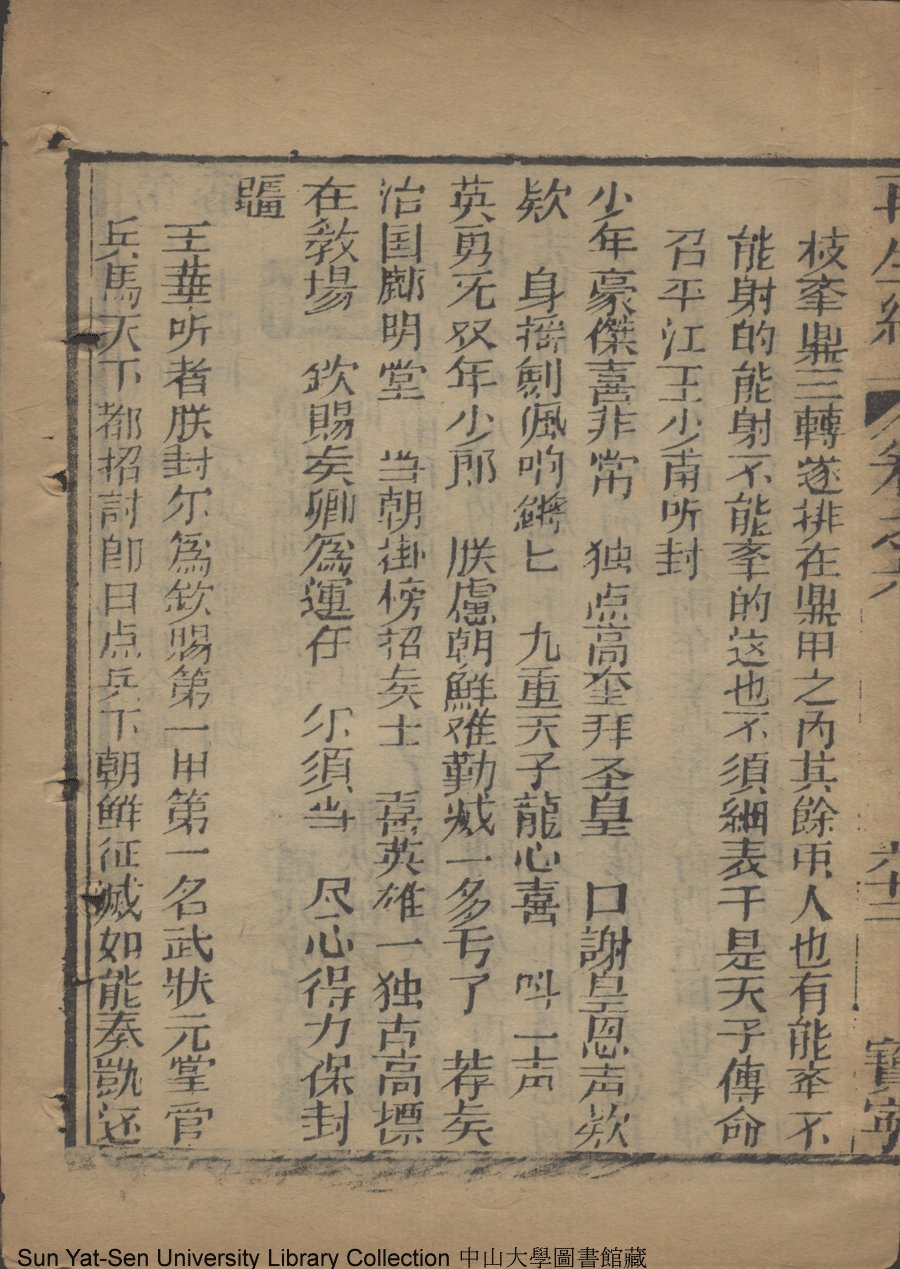 再生緣 卷之六 六十二 寶寧
枝牽鼎三轉遂排在鼎甲之内其餘眾人也有能牽不
能射的能射不能牽的这也不須細表于是天子傳命
召平江王少甫听封
少年豪傑喜非常 独点高奎拜圣皇 口謝皇恩声欸
欵 身搖劍佩响鏘匕 九重天子龍心喜 叫一声
英勇无双年少郎 朕慮朝鮮难勦滅 一多亏了 荐矣
治国鄺明堂 当朝掛榜招矣士 喜英雄 一独占高標
在教場 欽賜矣卿為運在 尔須当 尽心得力保封
疆
王華听者朕封尔為欽賜第一甲第一名武狀元掌管
兵馬天下都招討即日点兵下朝鮮征滅如能奏凱还
Sun Yat-Sen University Library Collection 中山大學圖書館藏